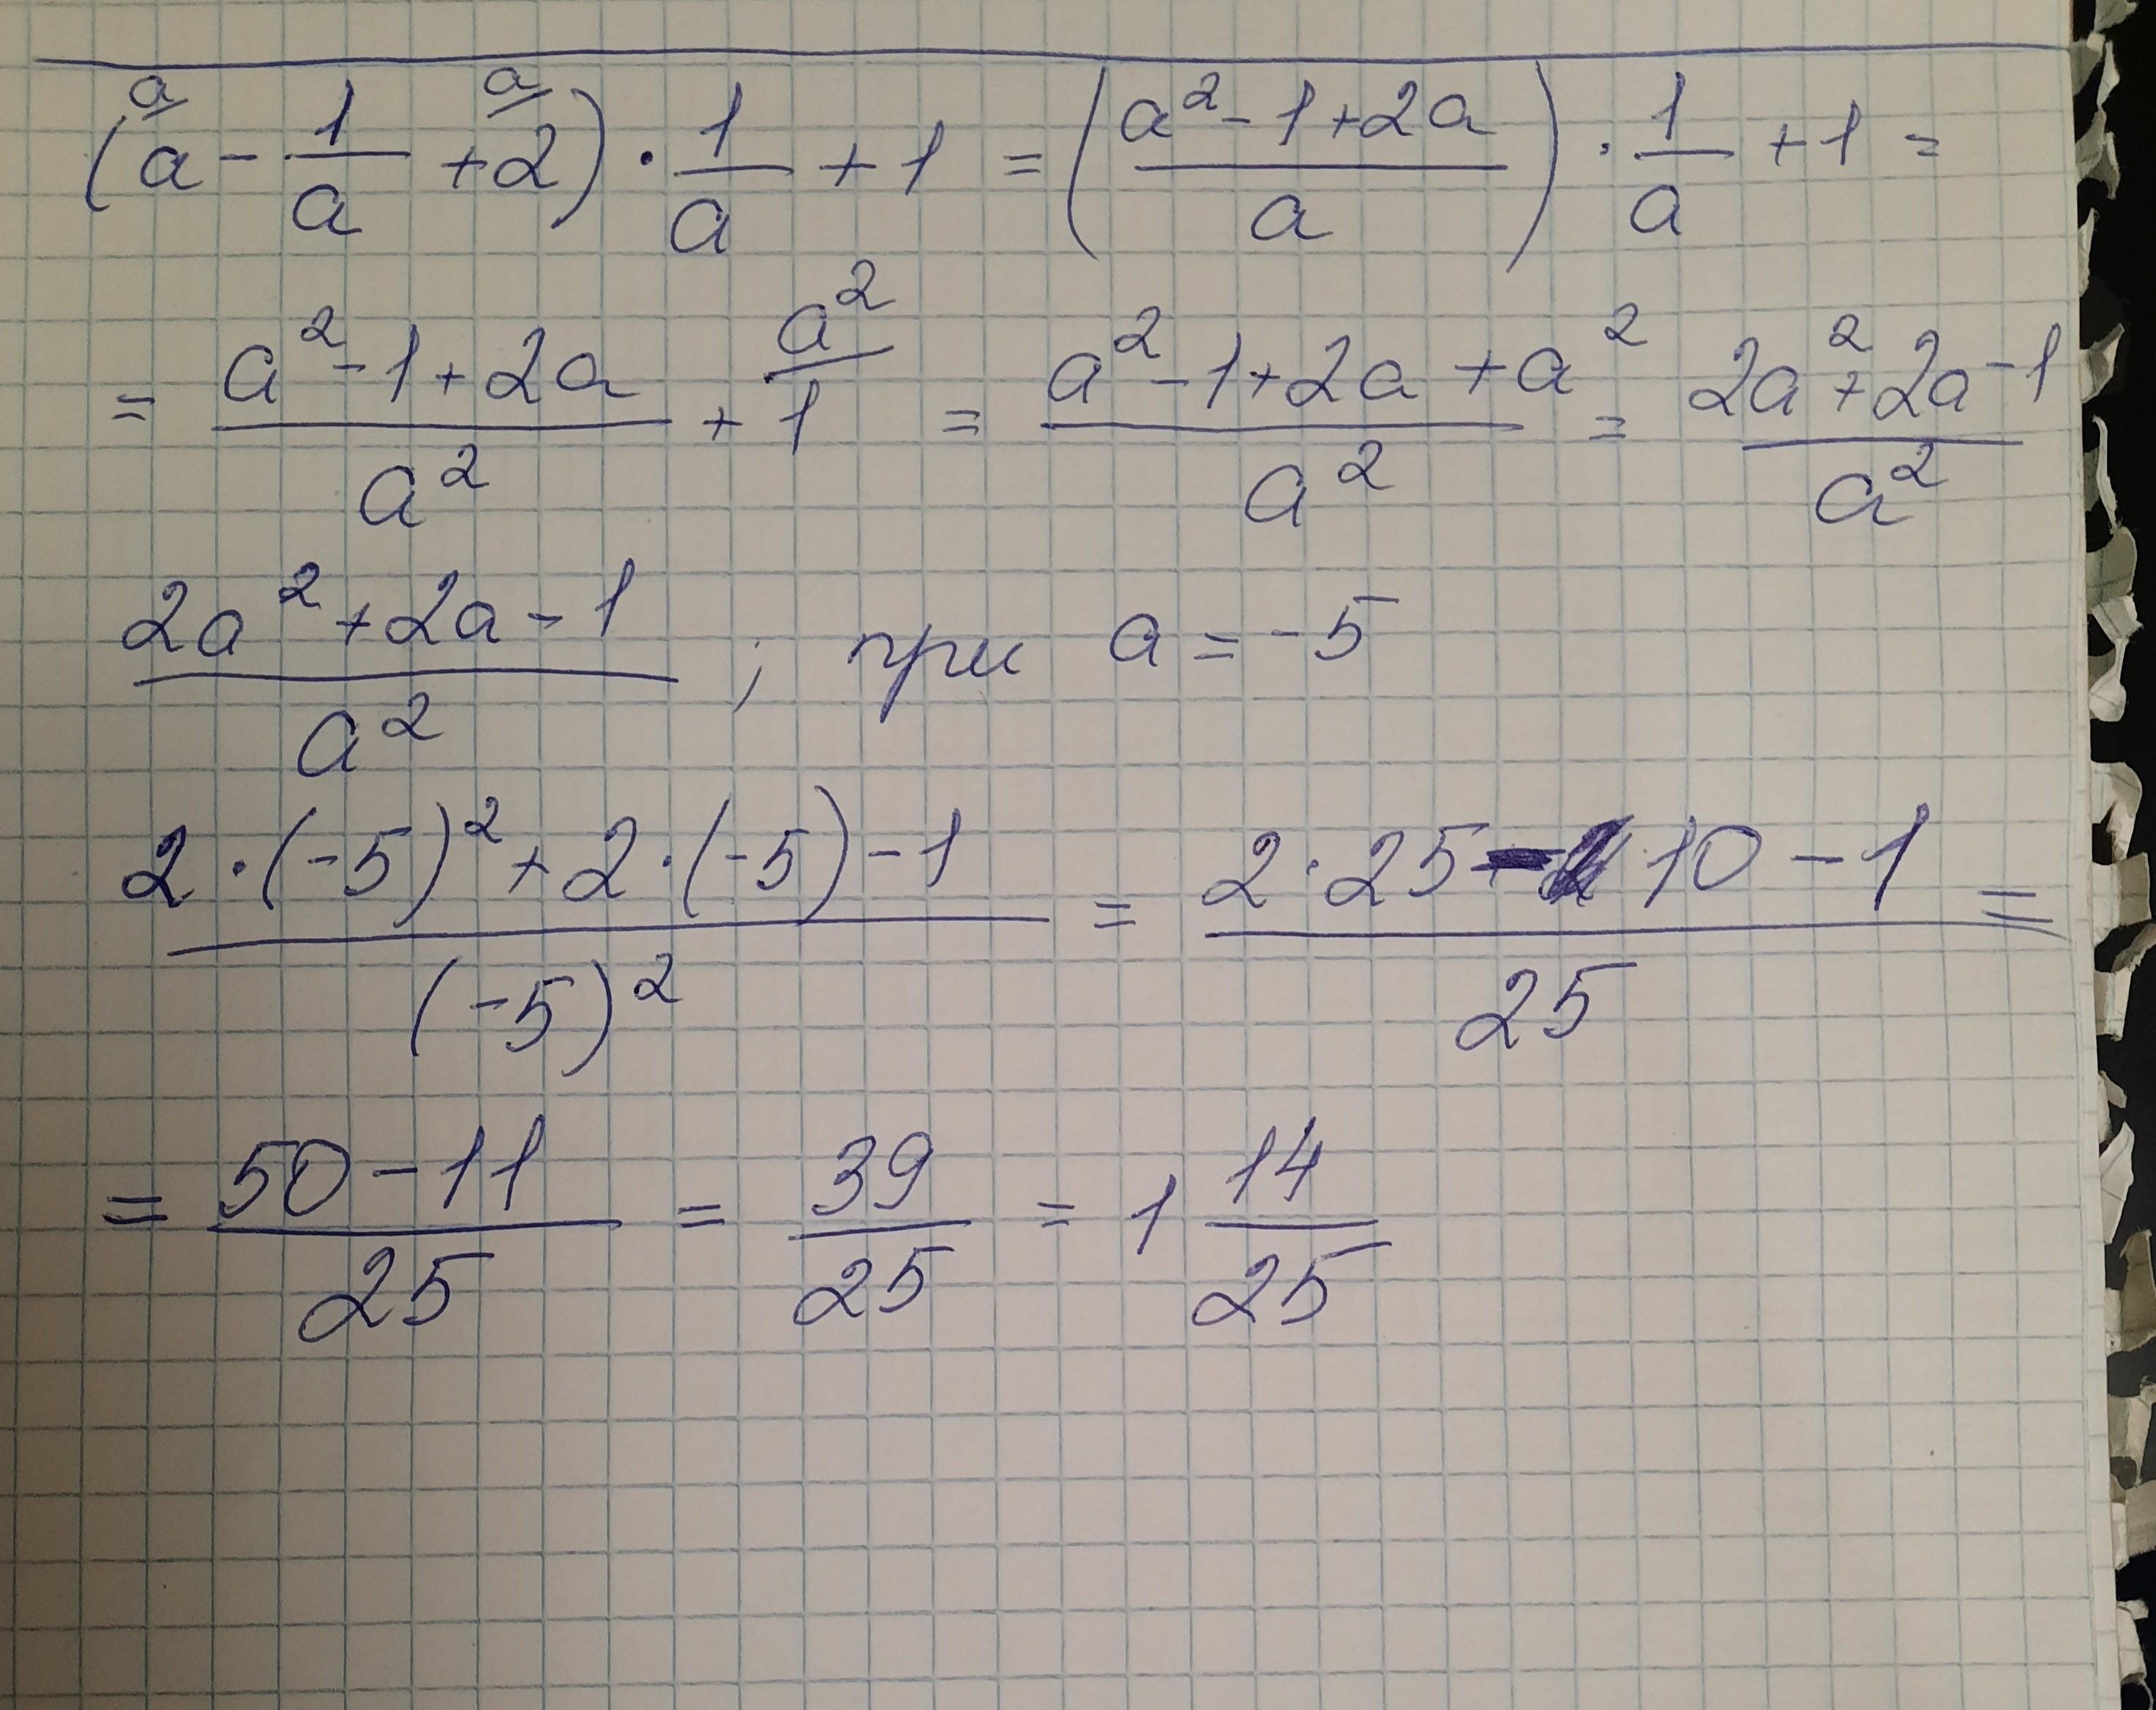 (a^{a/} - \frac{1}{a} + 2^{a/}) · \frac{1}{a} + 1 = (\frac{a² - 1 + 2a}{a}) · \frac{1}{a} + 1 =
= \frac{a² - 1 + 2a}{a²} + 1^{a²/} = \frac{a² - 1 + 2a + a²}{a²} = \frac{2a² + 2a - 1}{a²}
\frac{2a² + 2a - 1}{a²} ; при a = -5
\frac{2 · (-5)² + 2 · (-5) - 1}{(-5)²} = \frac{2 · 25 - 10 - 1}{25} =
= \frac{50 - 11}{25} = \frac{39}{25} = 1 \frac{14}{25}